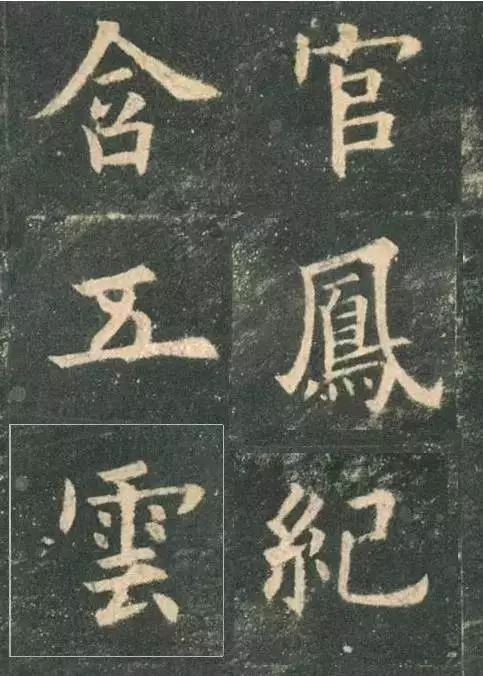 官鳳紀
含五雲